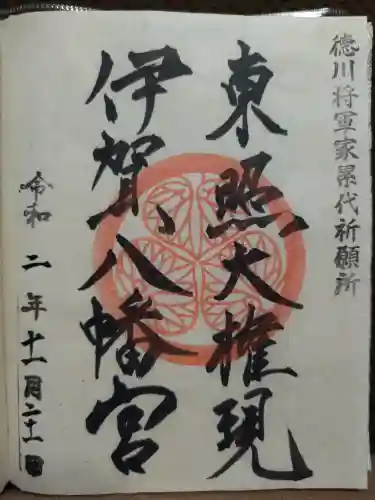 徳川将軍家累代祈願所
東照大権現
伊賀八幡宮
令和二年十一月二十一日